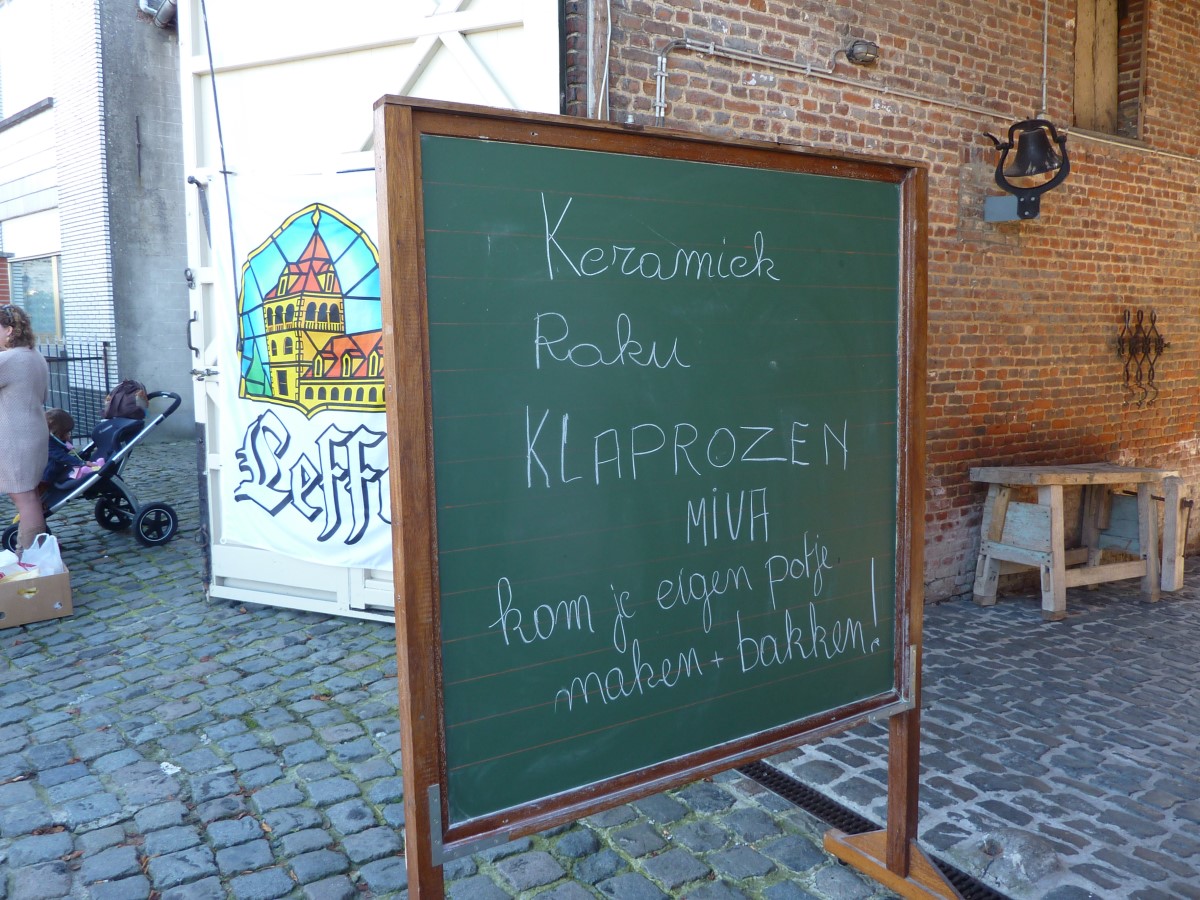 Leffe
Keramiek
Raku
KLAPROZEN
MIVA
kom je eigen potje
maken + bakken!